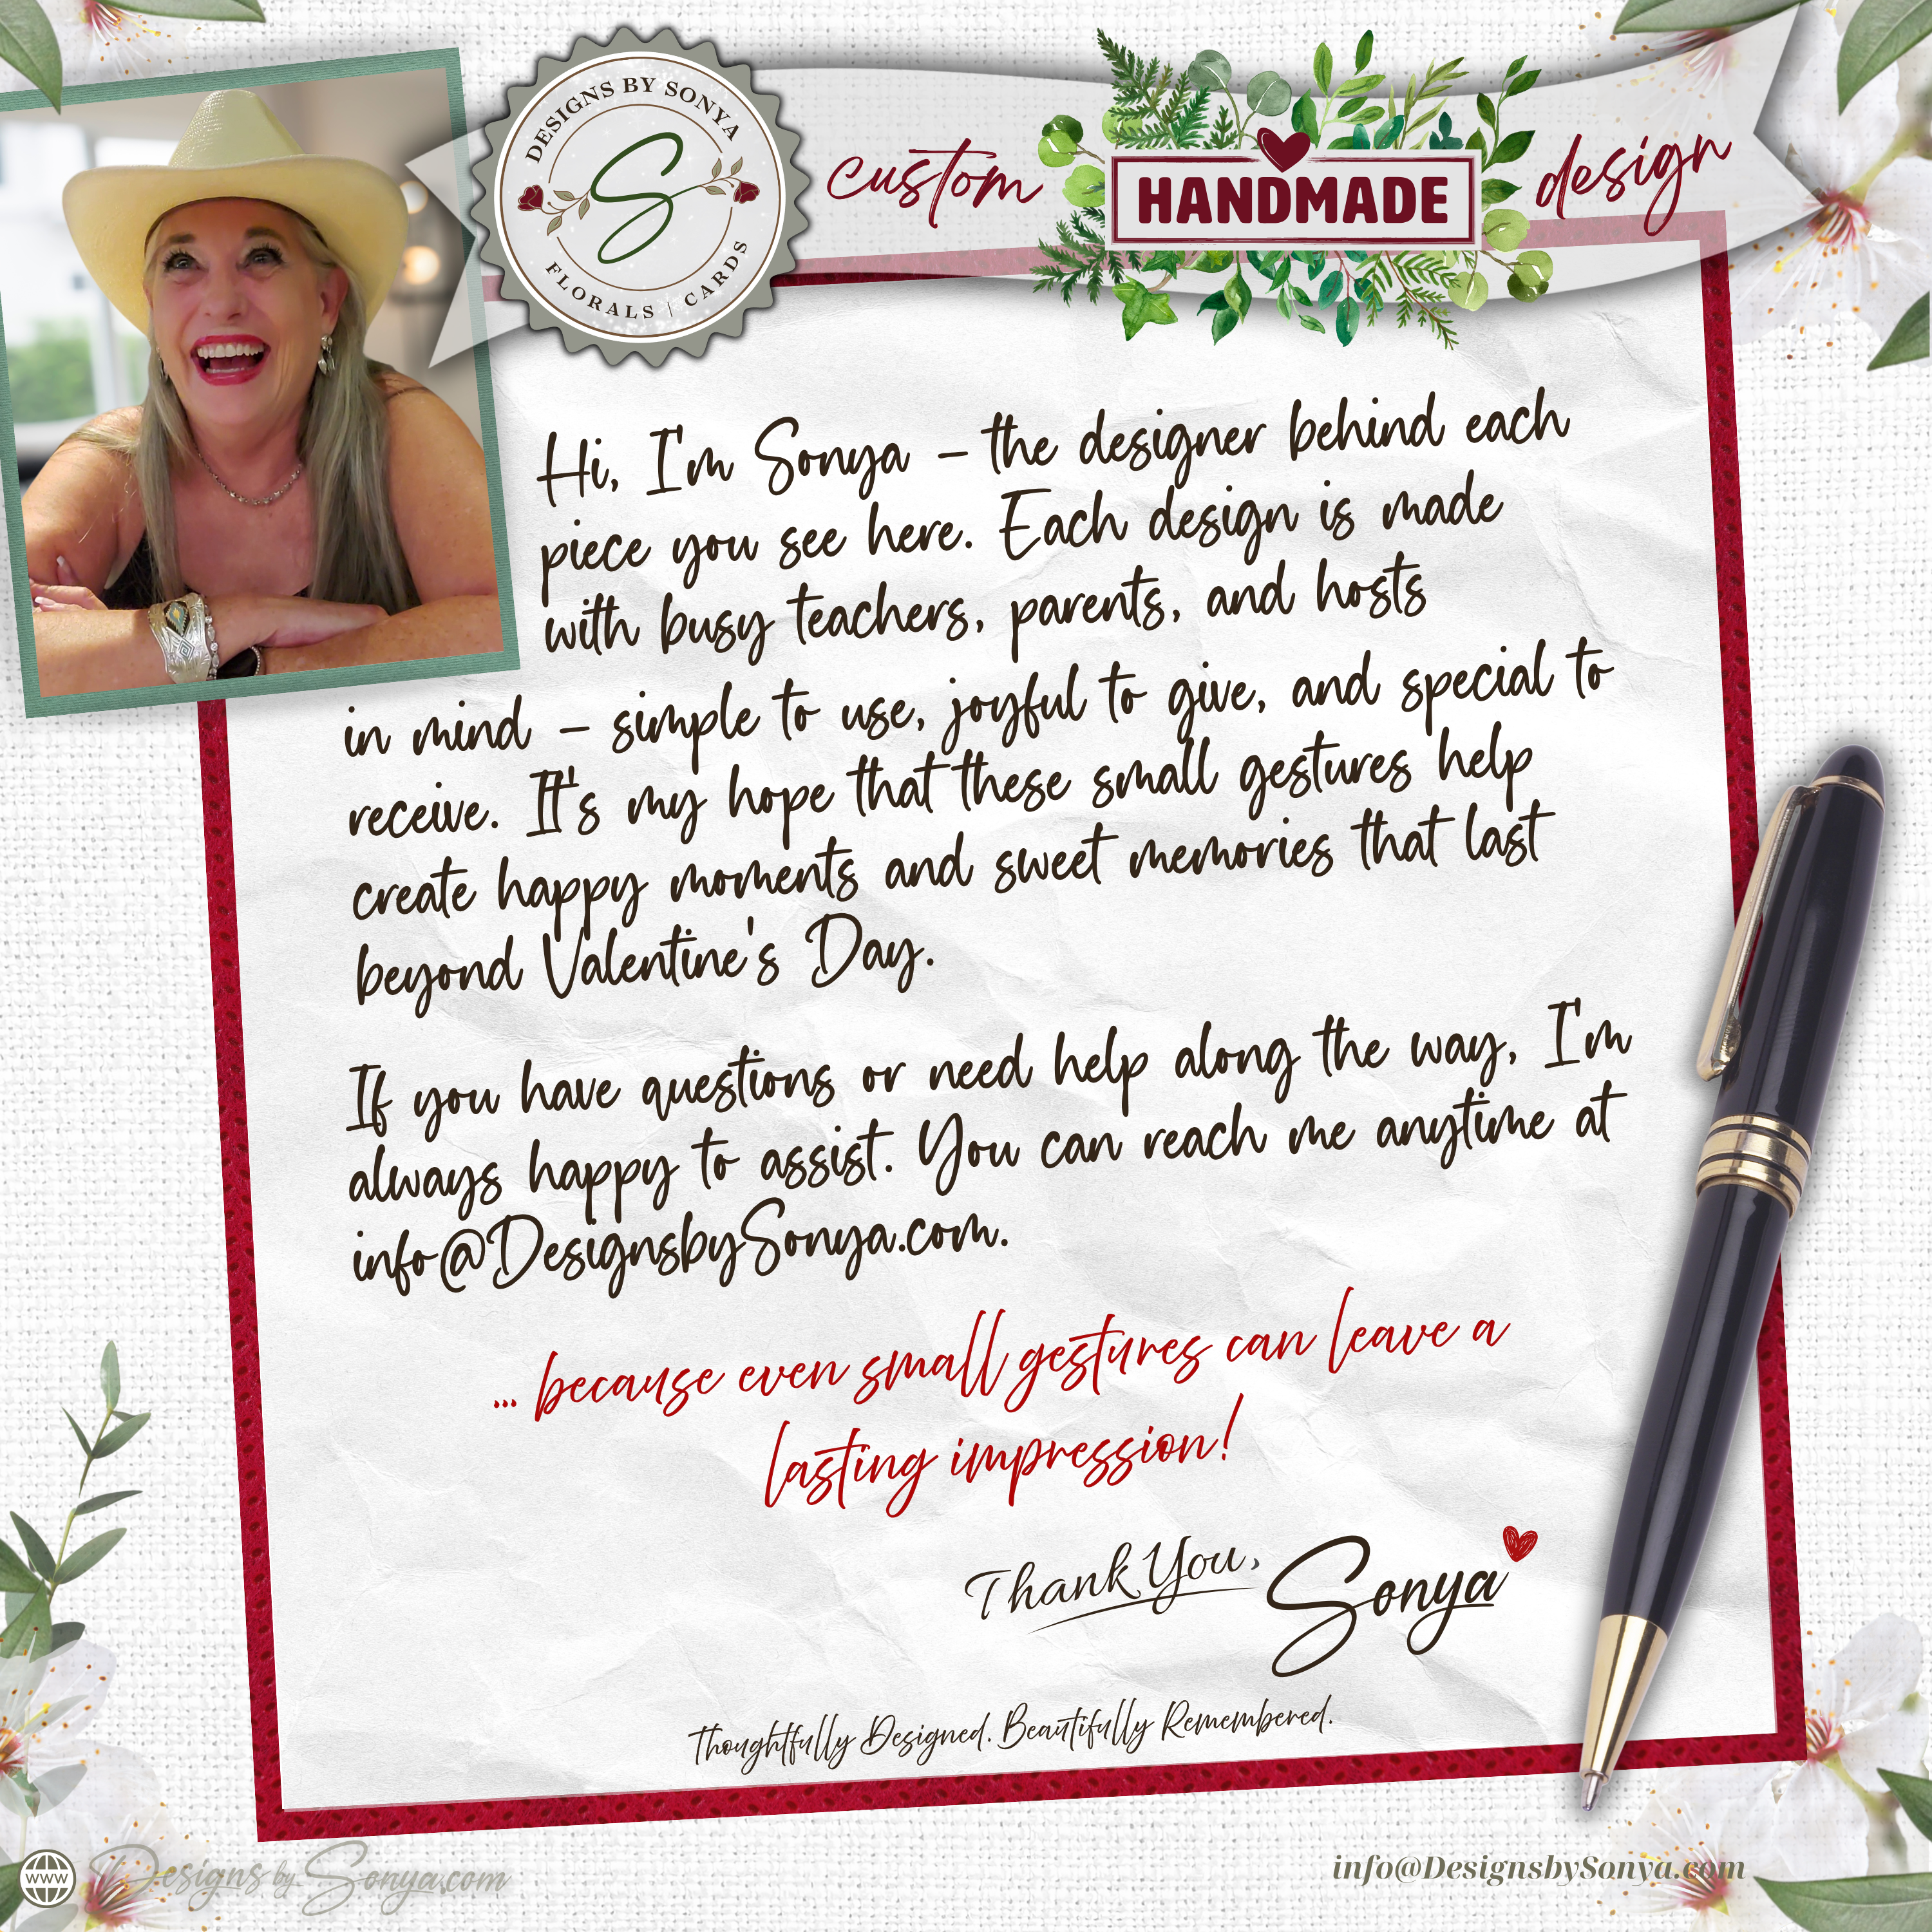 DESIGNS BY SONYA
S
FLORALS | CARDS
custom
HANDMADE
design
Hi, I'm Sonya – the designer behind each
piece you see here. Each design is made
with busy teachers, parents, and hosts
in mind – simple to use, joyful to give, and special to
receive. It's my hope that these small gestures help
create happy moments and sweet memories that last
beyond Valentine's Day.
If you have questions or need help along the way, I'm
always happy to assist. You can reach me anytime at
info@DesignsbySonya.com.
... because even small gestures can leave a
lasting impression!
Thank You, Sonya
Thoughtfully Designed. Beautifully Remembered.
www DesignsbySonya.com
info@DesignsbySonya.com